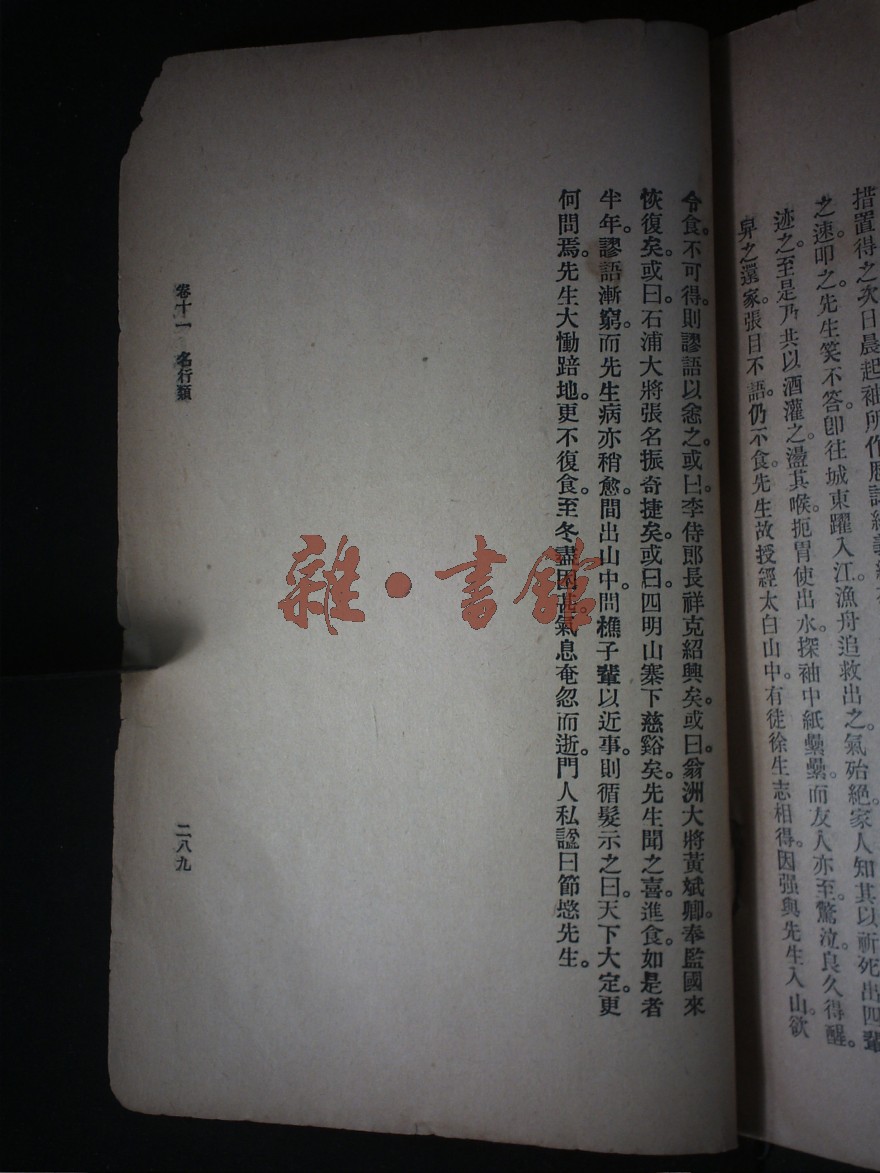 措置得之次日晨起袖所作
之速叩之先生笑不答。卽往城東躍入江漁舟追救出之。氣殆絕。家人知其以祈死出四輩
迹之。至是乃共以酒灌之。盪其喉。扼胃使出水。探袖中紙纍纍。而友人亦至。驚泣。良久得醒。
舁之還家。張目不語。仍不食。先生故授經太白山中。有徒徐生志相得。因强與先生入山。欲
令食。不可得。則謬語以悆之。或曰。李侍郎長祥克紹興矣。或曰。翁洲大將黃斌卿。奉監國來
恢復矣。或曰。石浦大將張名振奇捷矣。或曰。四明山寨下慈谿矣。先生聞之喜。進食。如是者
半年。謬語漸窮。而先生病亦稍愈。間出山中。問樵子輩以近事。則循髮示之曰。天下大定。更
何問焉。先生大慟踣地。更不復食。至冬盡因甚。氣息奄忽而逝。門人私諡曰節愍先生。
卷十一 名行類
二八九
雜·書館